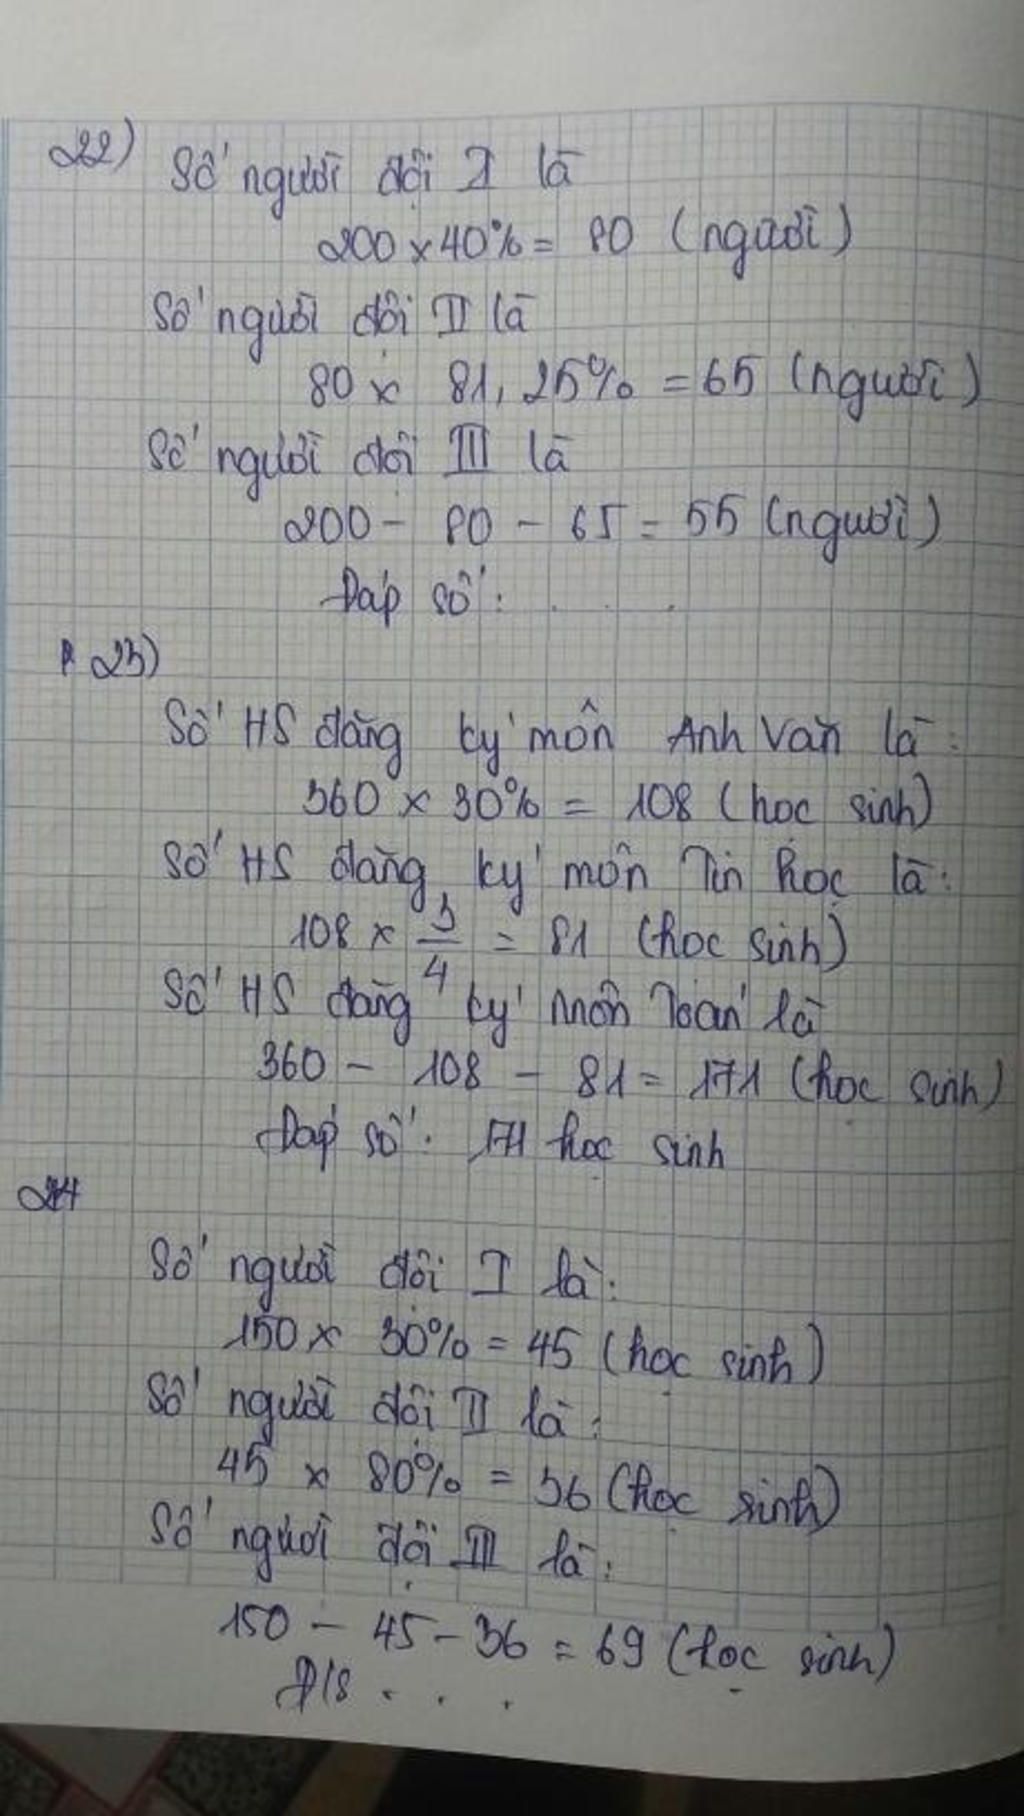 22) Số người đội I là
200 x 40% = 80 (người)
Số người đội II là
80 x 81,25% = 65 (người)
Số người đội III là
200 - 80 - 65 = 55 (người)
Đáp số: . . .
23)
Số HS đăng ký môn Anh Văn là:
360 x 30% = 108 (học sinh)
Số HS đăng ký môn Tin học là:
108 x 3/4 = 81 (học sinh)
Số HS đăng ký môn Toán là
360 - 108 - 81 = 171 (học sinh)
Đáp số: 171 học sinh
24
Số người đội I là:
150 x 30% = 45 (học sinh)
Số người đội II là:
45 x 80% = 36 (học sinh)
Số người đội III là:
150 - 45 - 36 = 69 (học sinh)
Đ/S . . .